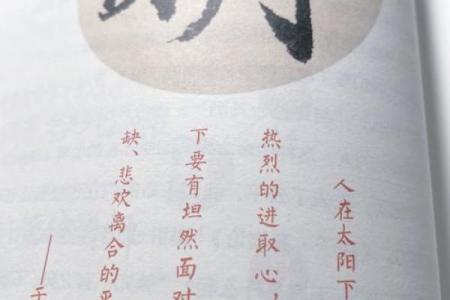 人在太阳下
热烈的进取心，
下要有坦然面对
缺、悲欢离合的平
——于